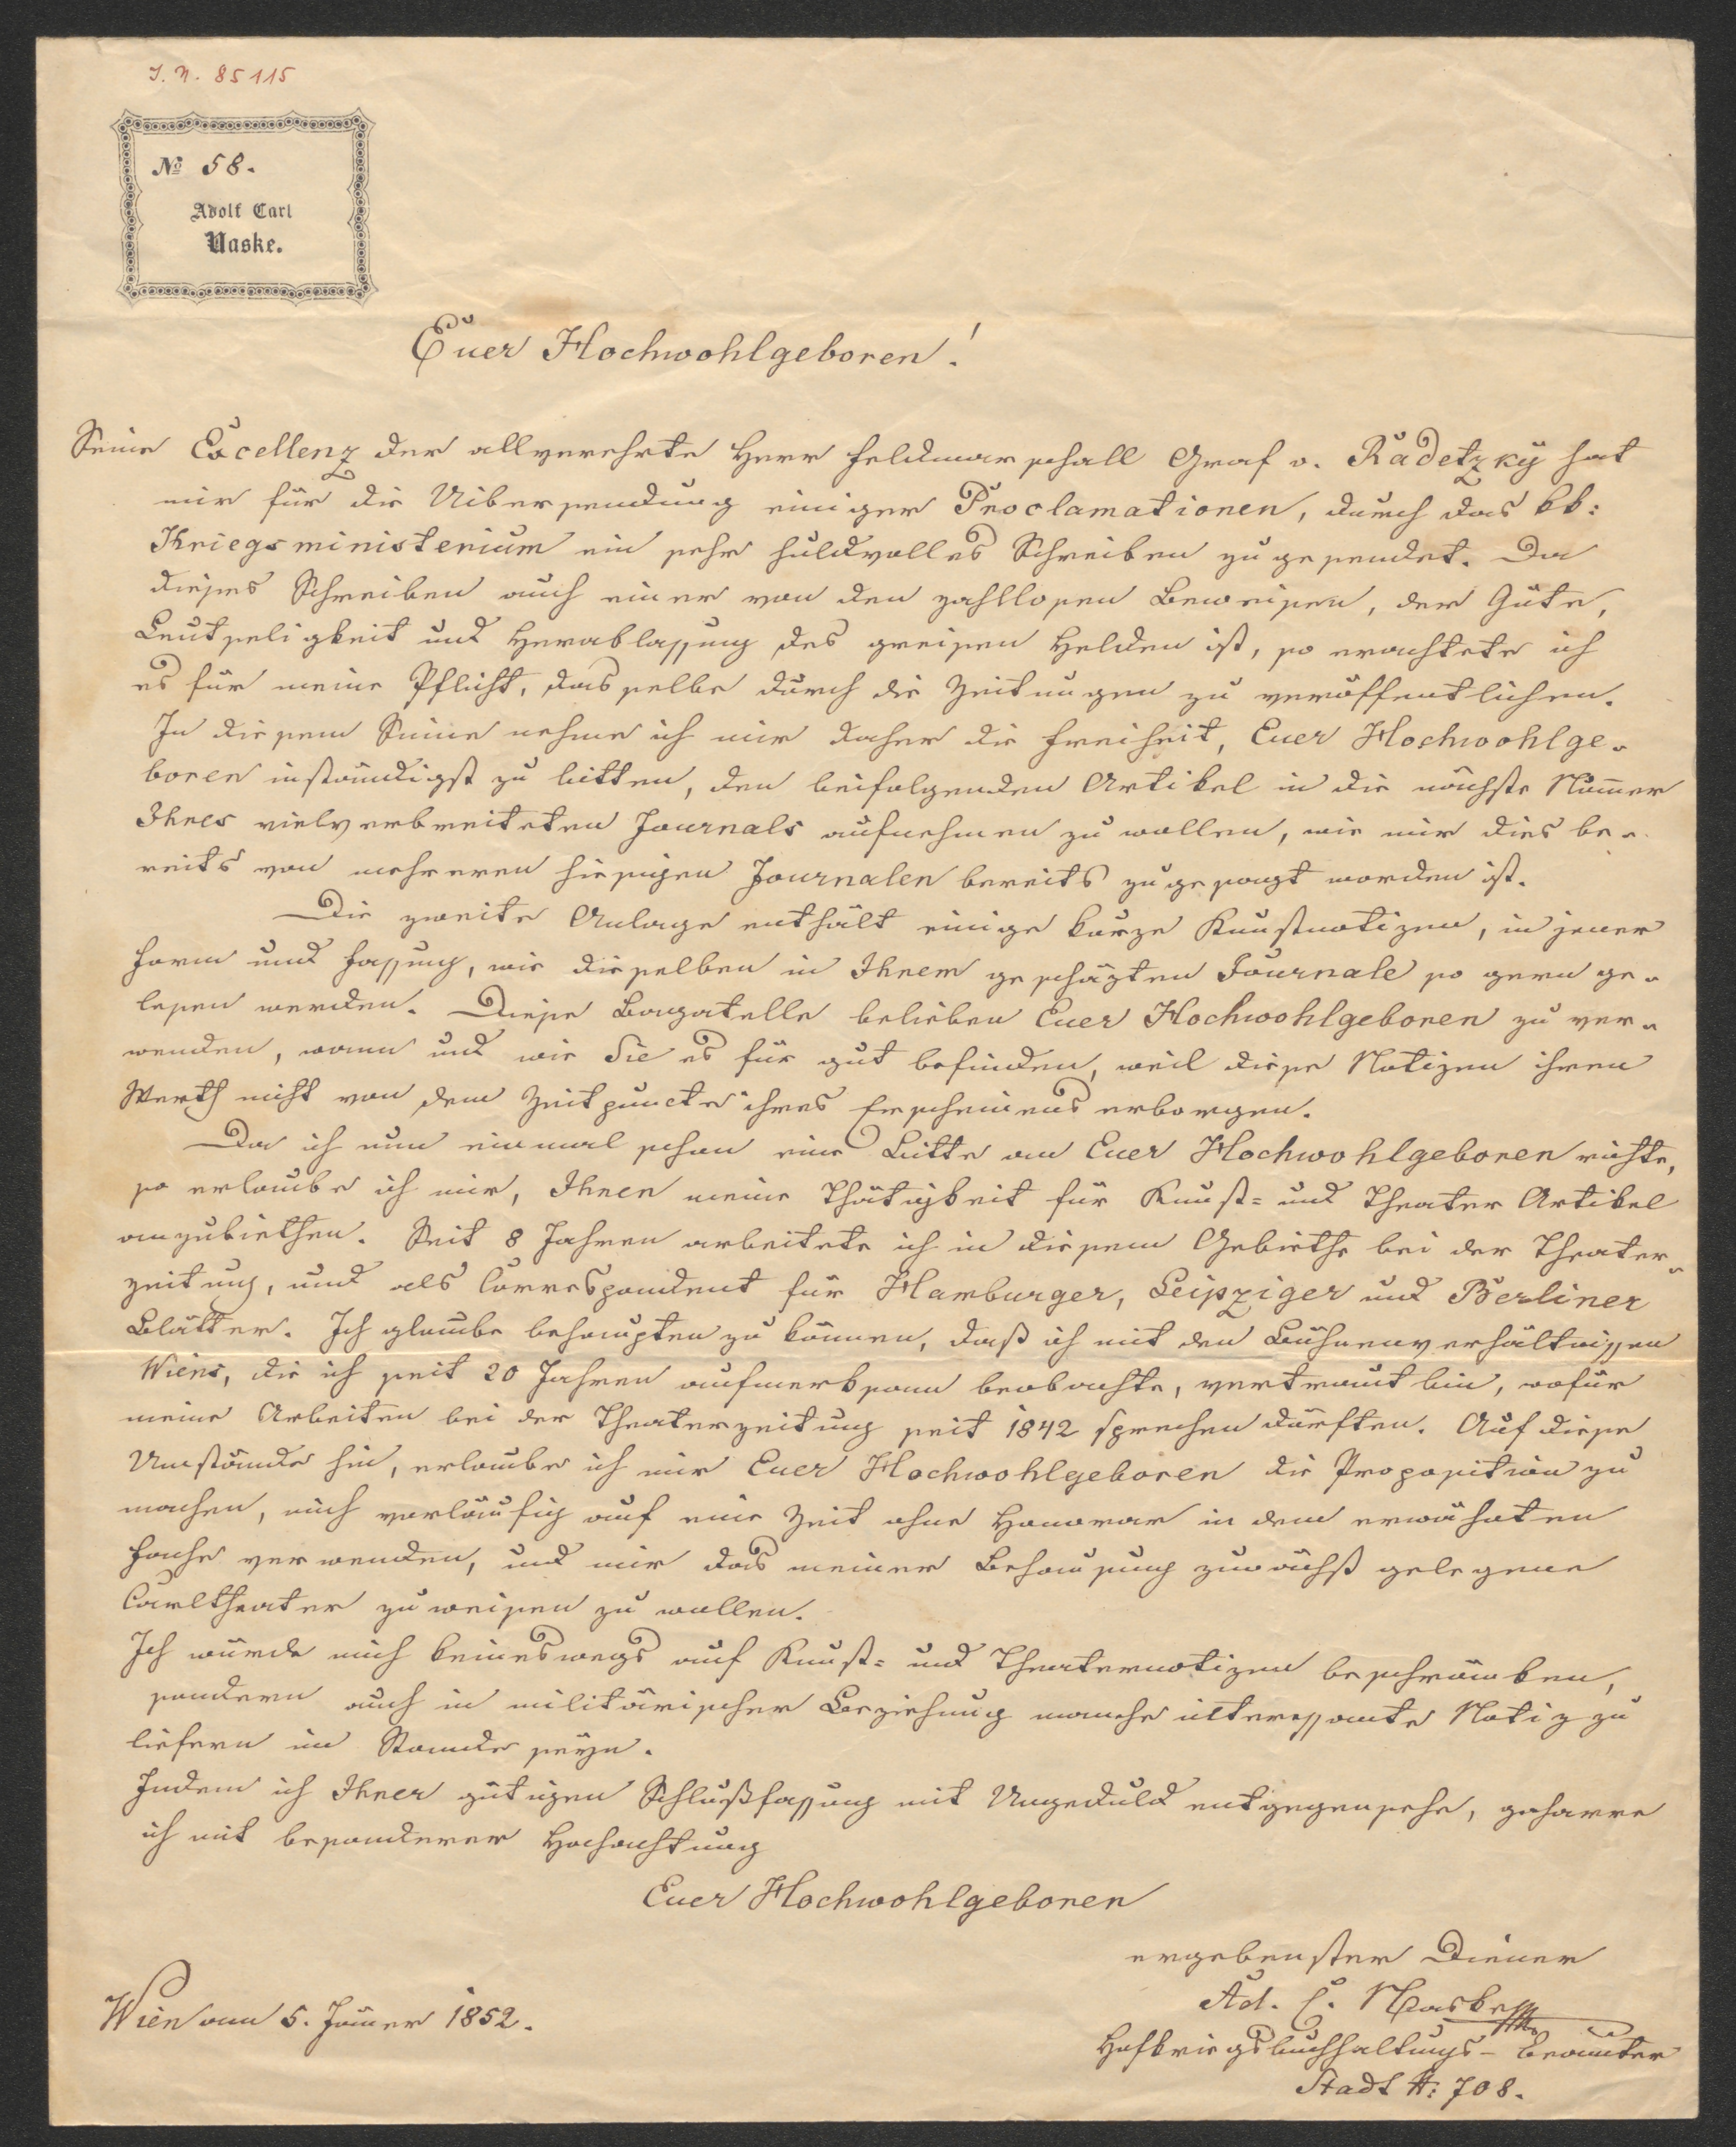 I. N. 85115
No 58.
Adolf Carl
Naske.
Euer Hochwohlgeboren!
Seine Excellenz der allverehrte Herr Feldmarschall Graf v. Radetzky hat
mir für die Uibersendung einiger Proclamationen, durch das kk:
Kriegsministerium ein sehr huldvolles Schreiben zugesendet. Da
dieses Schreiben auch einer von den zahllosen Beweisen, der Güte,
Leutseligkeit und Herablassung des greisen Helden ist, so erachtete ich
es für meine Pflicht, dasselbe durch die Zeitungen zu veröffentlichen.
In diesem Sinne nehme ich mir daher die Freiheit, Euer Hochwohlge-
boren inständigst zu bitten, den beifolgenden Artikel in die nächste Nu̅mer
Ihres vielverbreiteten Journals aufnehmen zu wollen, wie mir dies be-
reits von mehreren hiesigen Journalen bereits zugesagt worden ist.
Die zweite Anlage enthält einige kurze Kunstnotizen, in jener
Form und Fassung, wie dieselben in Ihrem geschäzten Journale so gern ge-
lesen werden. Diese Bagatelle belieben Euer Hochwohlgeboren zu ver-
wenden, wann und wie Sie es für gut befinden, weil diese Notizen ihren
Werth nicht von dem Zeitpuncte ihres Erscheinens erborgen.
Da ich nun einmal schon eine Bitte an Euer Hochwohlgeboren richte,
so erlaube ich mir, Ihnen meine Thätigkeit für Kunst- und Theater Artikel
anzubiethen. Seit 8 Jahren arbeitete ich in diesem Gebiethe bei der Theater-
zeitung, und als Correspondent für Hamburger, Leipziger und Berliner
Blätter. Ich glaube behaupten zu können, daß ich mit den Bühnenverhältnissen
Wiens, die ich seit 20 Jahren aufmerksam beobachte, vertraut bin, wofür
meine Arbeiten bei der Theaterzeitung seit 1842 sprechen dürften. Auf diese
Umstände hin, erlaube ich mir Euer Hochwohlgeboren die Proposition zu
machen, mich vorläufig auf eine Zeit ohne Honorar in dem erwähnten
Fache verwenden, und mir das meiner Behausung zunächst gelegene
Carltheater zuweisen zu wollen.
Ich würde mich keineswegs auf Kunst- und Theaternotizen beschränken,
sondern auch in militärischer Beziehung manche interessante Notiz zu
liefern im Stande seyn.
Indem ich Ihrer gütigen Schlußfassung mit Ungeduld entgegensehe, geharre
ich mit besonderer Hochachtung
Euer Hochwohlgeboren
ergebenster Diener
Ad. C. Naske
Wien am 5. Jäner 1852.
Hofkriegsbuchhaltungs-Beamter
Stadt N: 708.